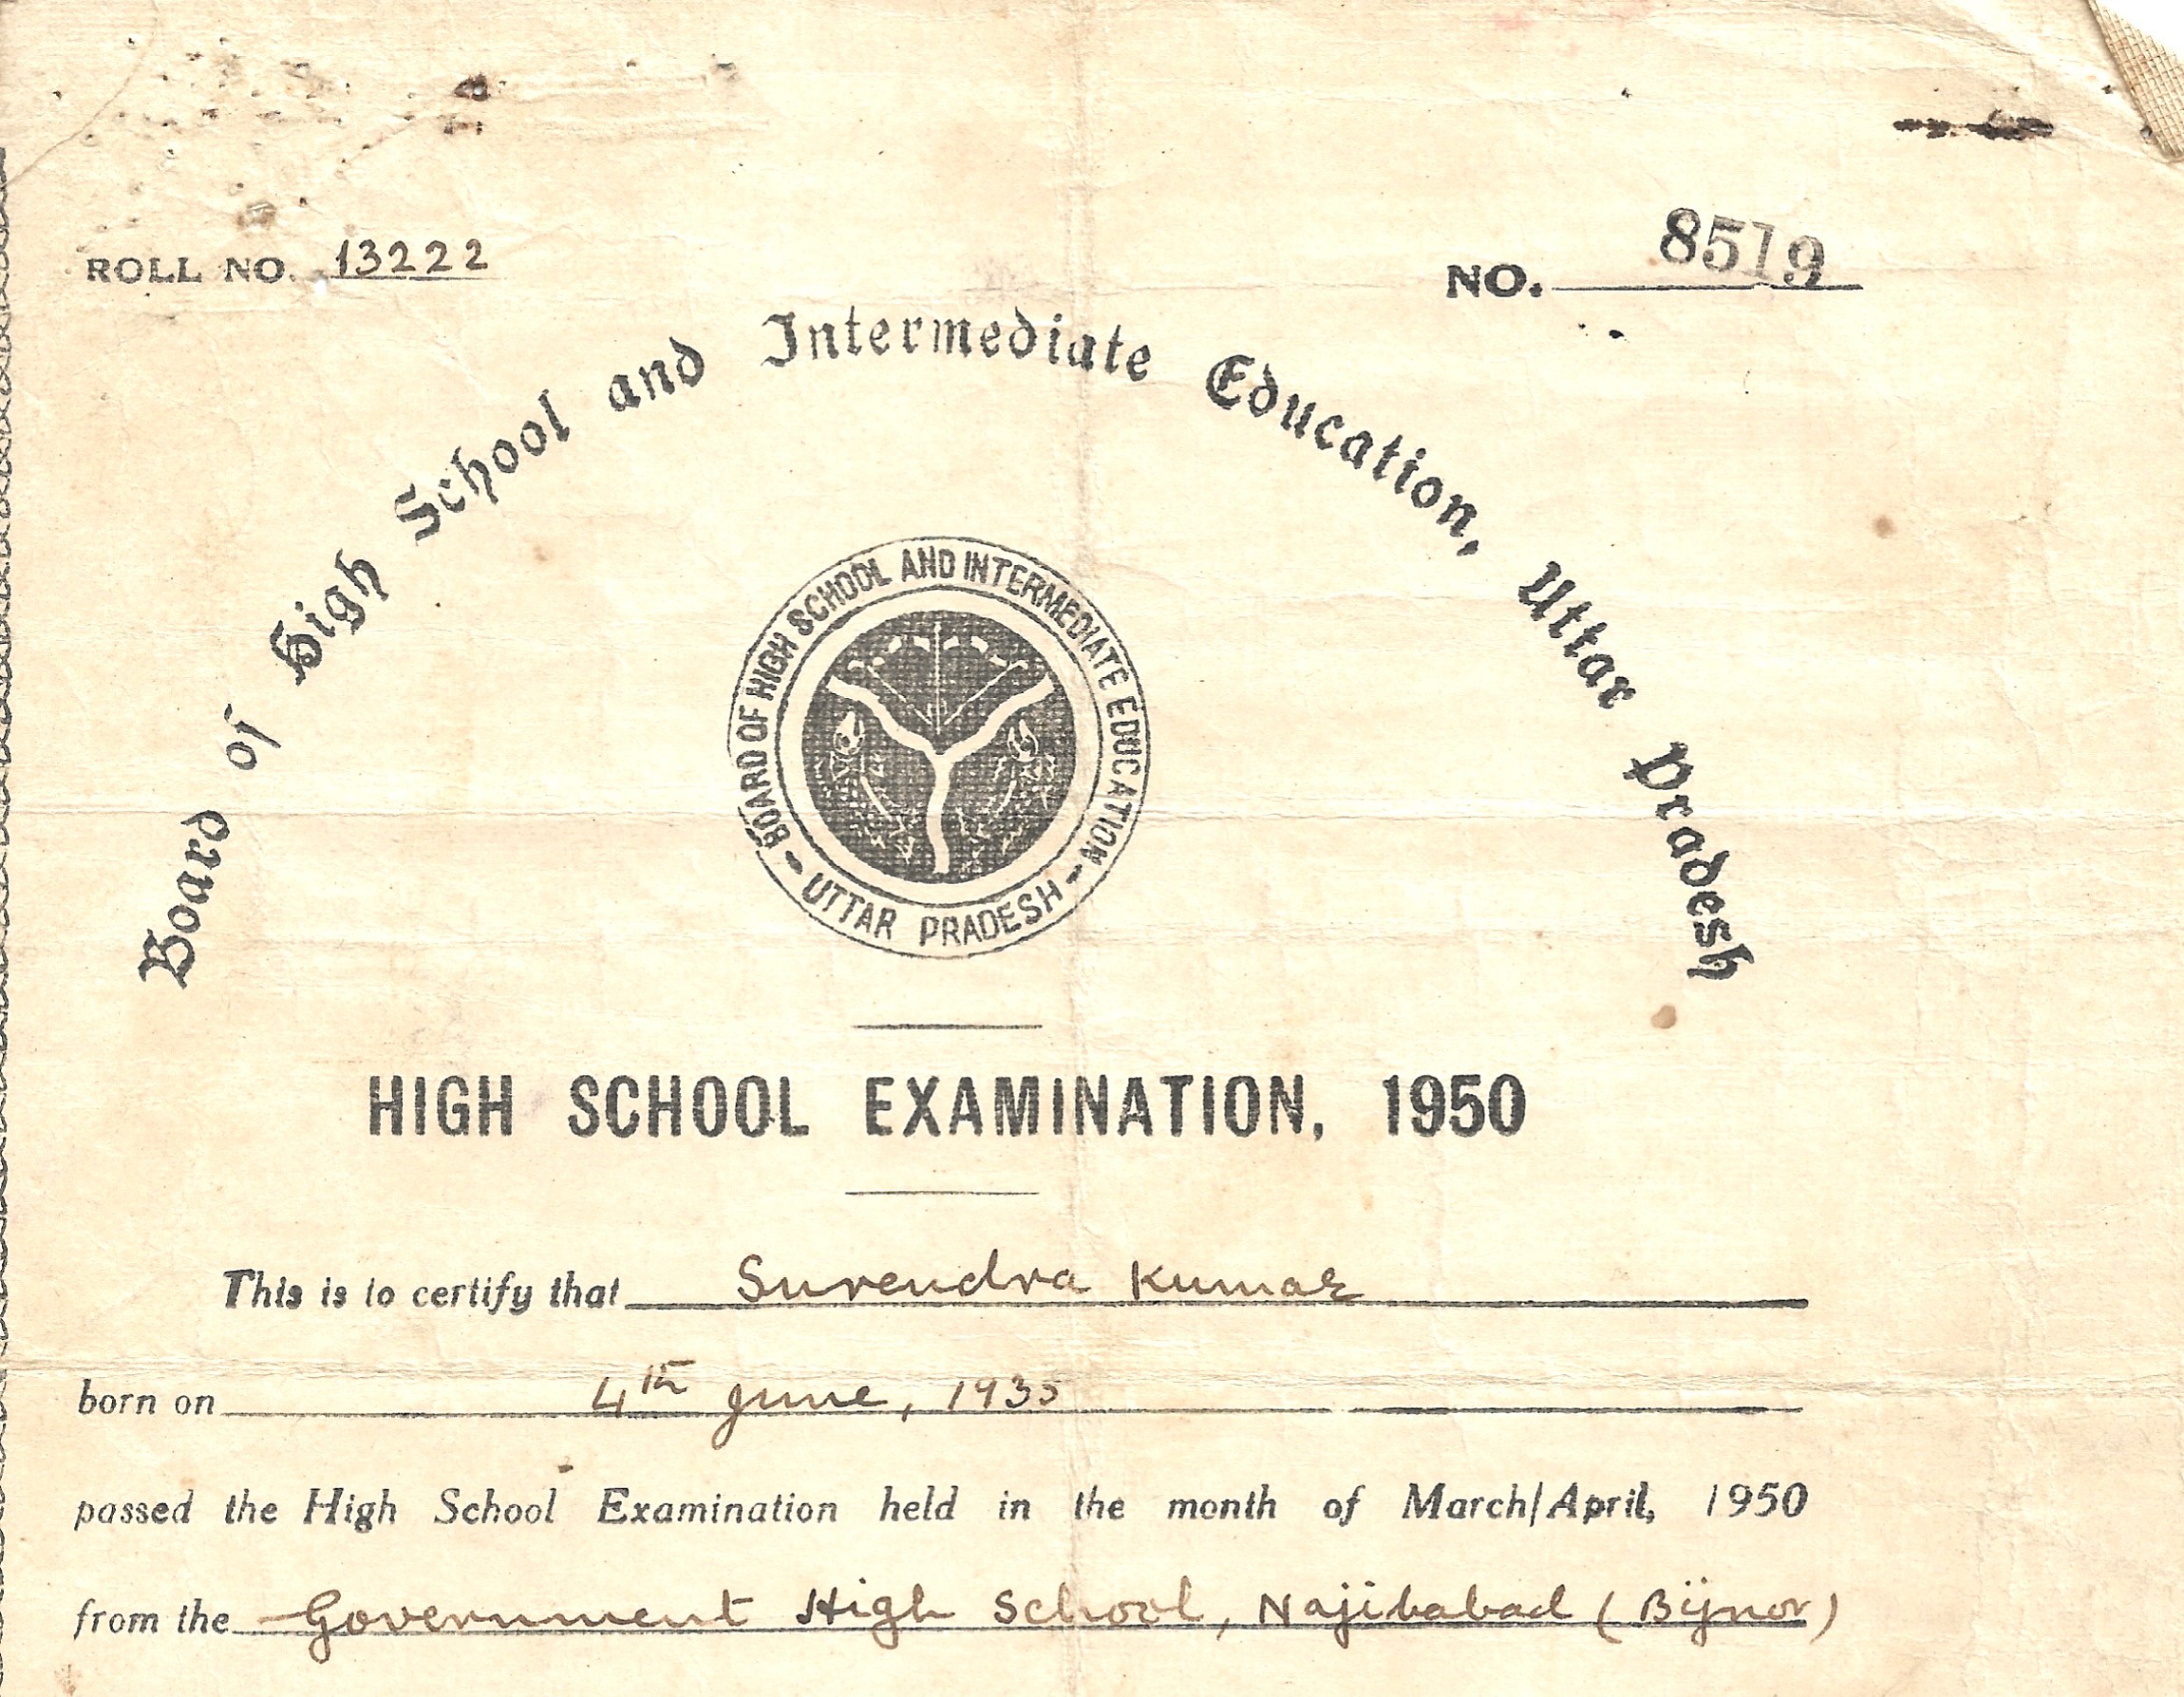 ROLL NO. 13222
NO. 8519
Board of High School and Intermediate Education, Uttar Pradesh
BOARD OF HIGH SCHOOL AND INTERMEDIATE EDUCATION
- UTTAR PRADESH -
HIGH SCHOOL EXAMINATION, 1950
This is to certify that Surendra Kumar
born on 4th June, 1935
passed the High School Examination held in the month of March/April, 1950
from the Government High School, Najibabad (Bijnor)